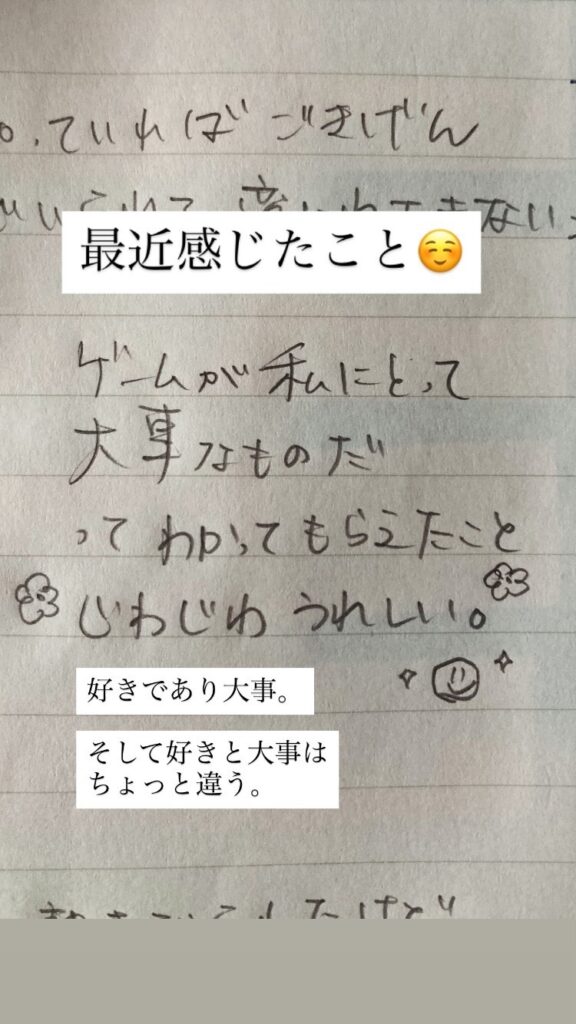 っていればごきげん
最近感じたこと☺️
ゲームが私にとって
大事なものだ
ってわかってもらえたこと
じわじわうれしい。
好きであり大事。
そして好きと大事は
ちょっと違う。